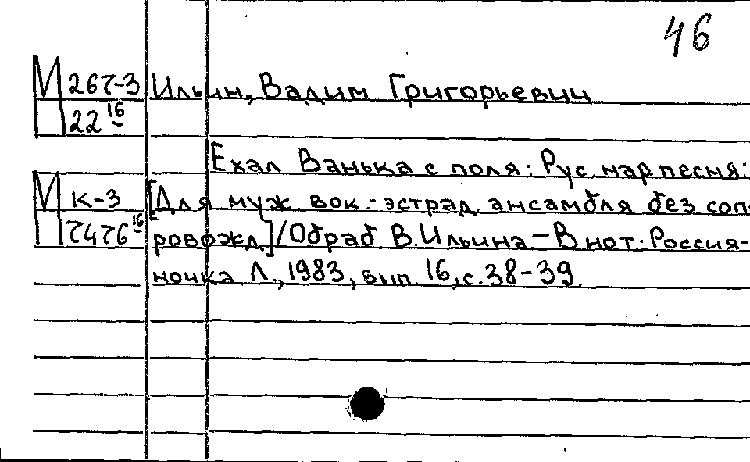 46
М 267-3 Ильин, Вадим Григорьевич
22 16
Ехал Ванька с поля: Рус нар песня:
М К-3 [Для муж вок.-эстрад. ансамбля без соп-
7476 16 ровожд.]/Обраб В. Ильина – В нот: Россия-
ночка Л., 1983, вып 16, с. 38-39.